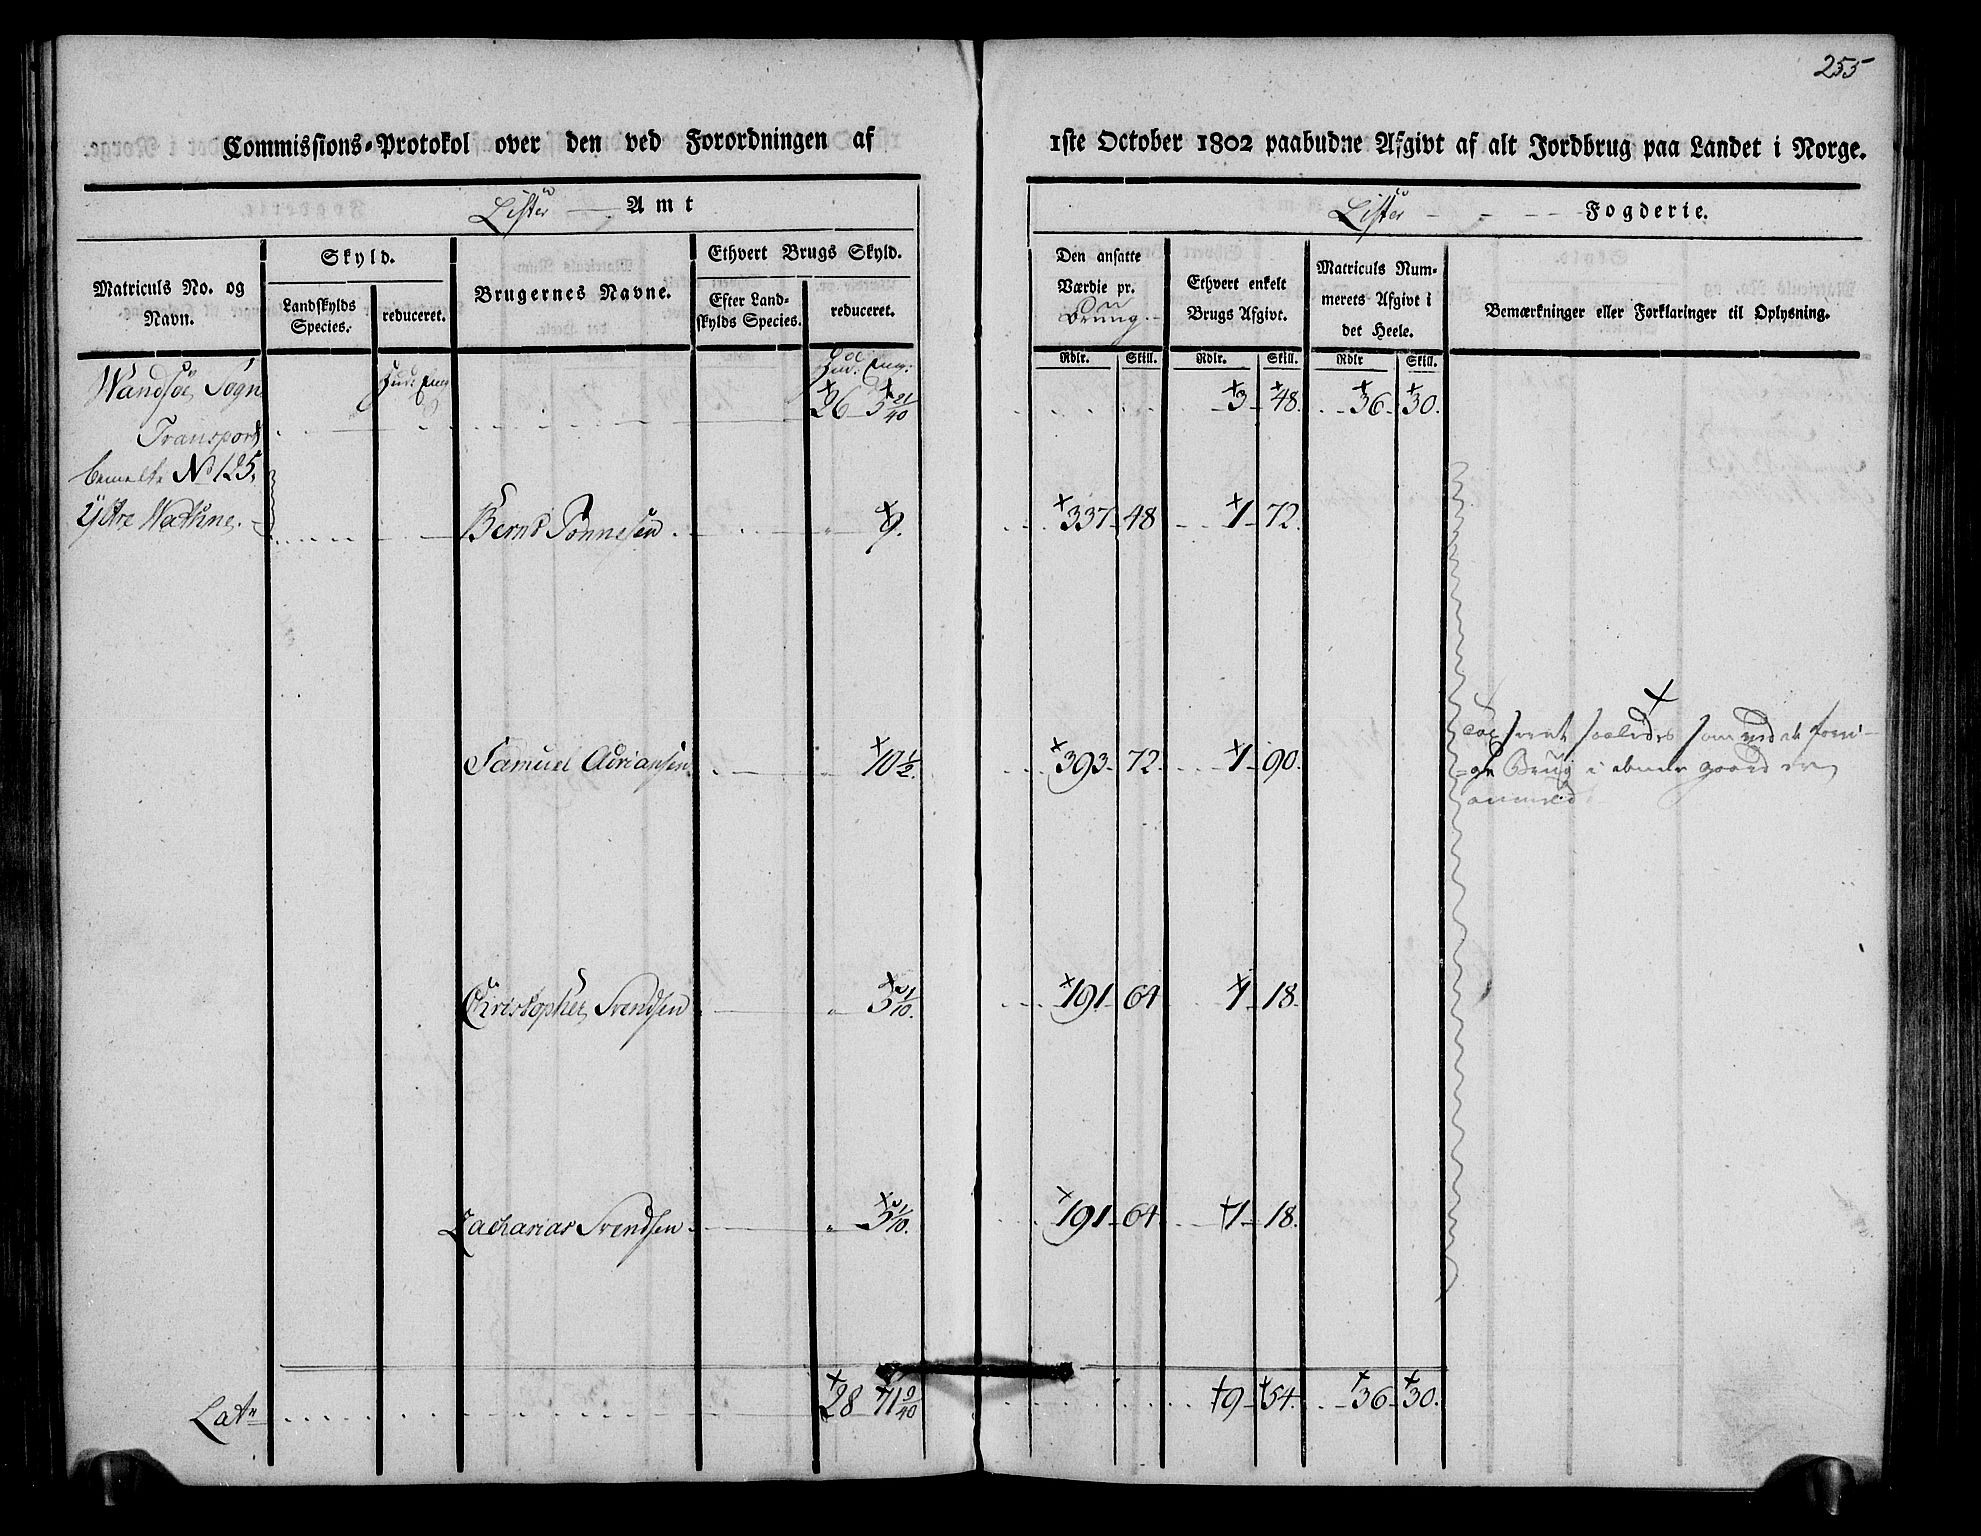 255
Commissions-Protokol over den ved Forordningen af 1ste October 1802 paabudne Afgivt af alt Jordbrug paa Landet i Norge.
Lister Amt
Lister Fogderie.
Matriculs No. og Navn.
Skyld.
Landskylds Species.
reduceret.
Brugernes Navne.
Ethvert Brugs Skyld.
Efter Landskylds Species.
reduceret.
Den ansatte Værdie pr. Brug.
Ethvert enkelt Brugs Afgivt.
Matriculs Nummerets Afgivt i det Heele.
Bemærkninger eller Forklaringer til Oplysning.
Rdlr. Skill. Rdlr. Skill. Rdlr Skill.
Wandsøe Sogn
Hud: Eng
Hud: Eng:
26 5 21/40 3 48. 36 30.
Transport
bemelte No 125.
Ydtre Wathne.
Bernt Tønnesen 9. 337 48 1 72.
Samuel Adriansen 10 1/2. 393 72 1 90.
saaledes som ved de forri-
ge Brug i denne gaard er
anmeldt
Christopher Svendsen 5 1/10. 191 64 1 18.
Zacharias Svendsen 5 1/10. 191 64 1 18.
Lat 28 71 9/40 9 54. 36 30.